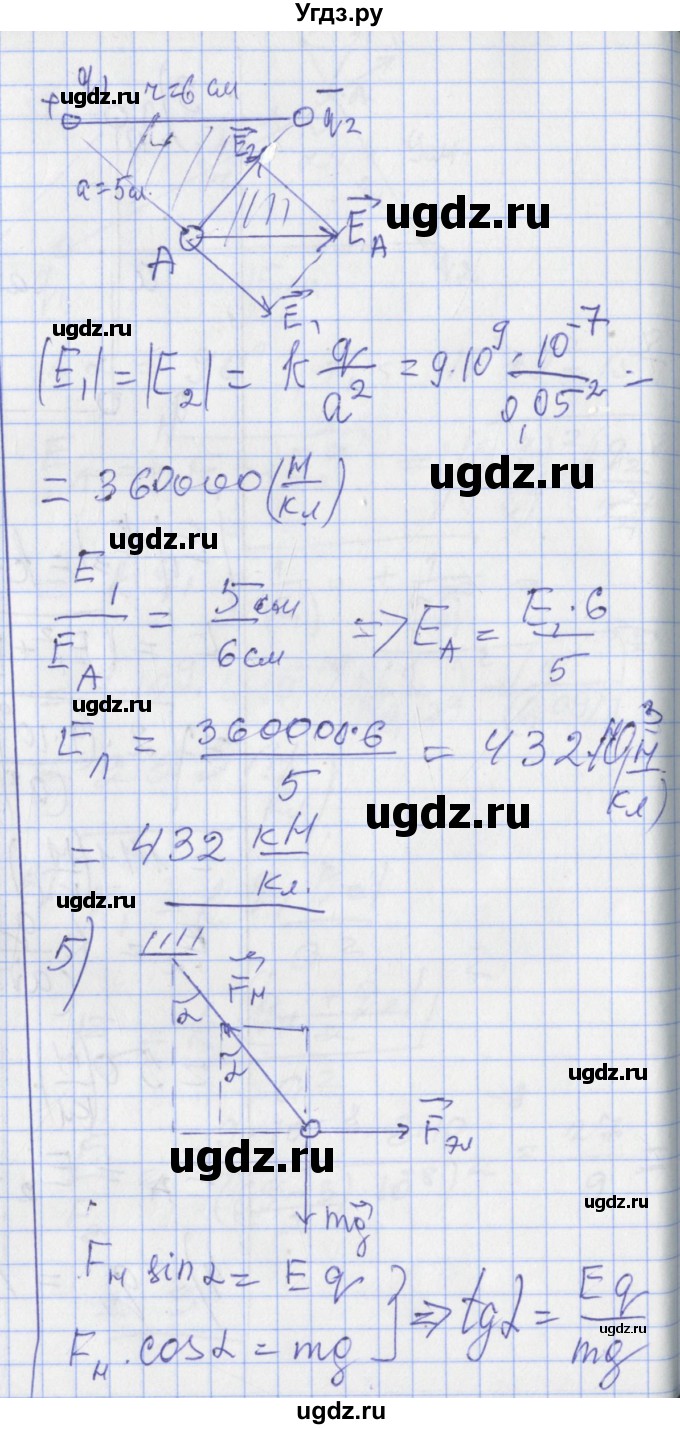 Угдз.ру
q₁ r=6 см
ugdz.ru
+ −q₂
E₂
a=5см.
ugdz.ru
E_A
A
ugdz.ru
E₁
|E₁|=|E₂|= k q/a² = 9·10⁹ · 10⁻⁷/0,05² =
= 360000 (Н/Кл)
ugdz.ru
ugdz.ru
E₁/E_A = 5 см/6 см => E_A = E₁·6/5
ugdz.ru
E_A = 360000·6/5 = 432·10³ (Н/Кл)
ugdz.ru
= 432 кН/Кл.
ugdz.ru
5)
F_н
α
α
ugdz.ru
F_эл
ugdz.ru
ugdz.ru
mg
F_н sin α = Eq
F_н · cos α = mg } => tg α = Eq/mg
ugdz.ru
ugdz.ru